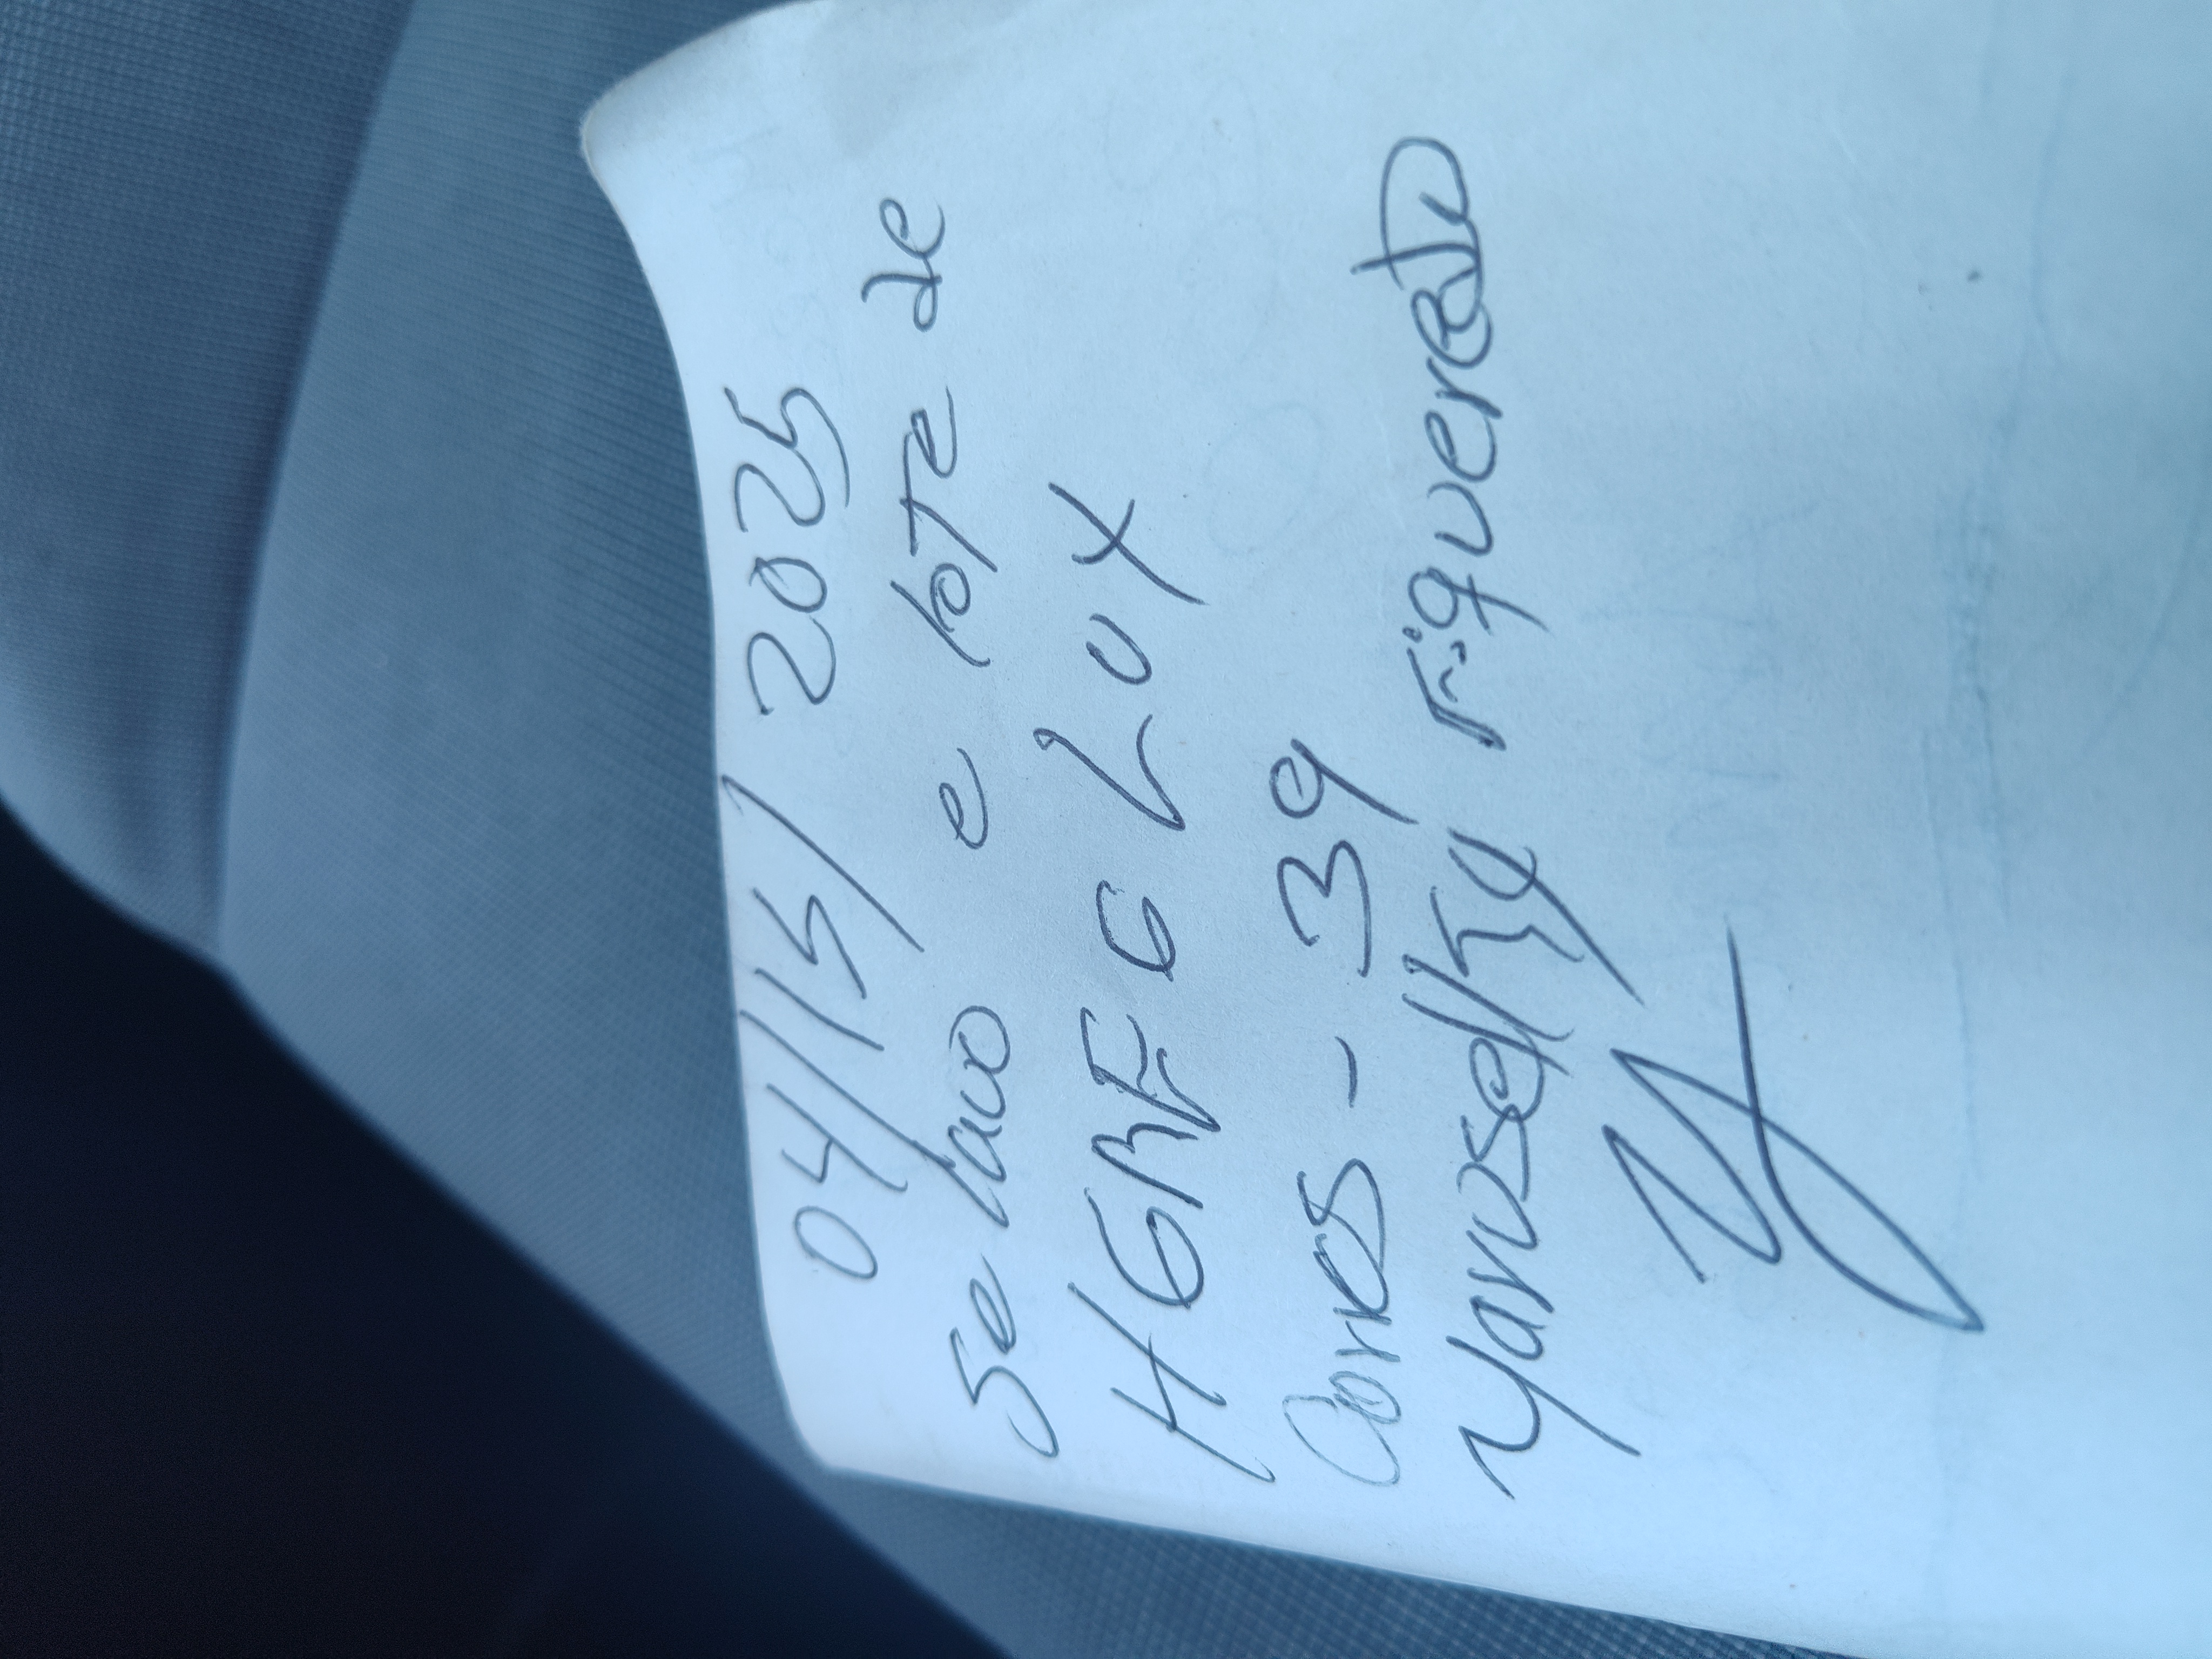 04/15/2025
Se lavo e lote de
HGMF G LUX
Cones - 39
Yaruselky Figueredo